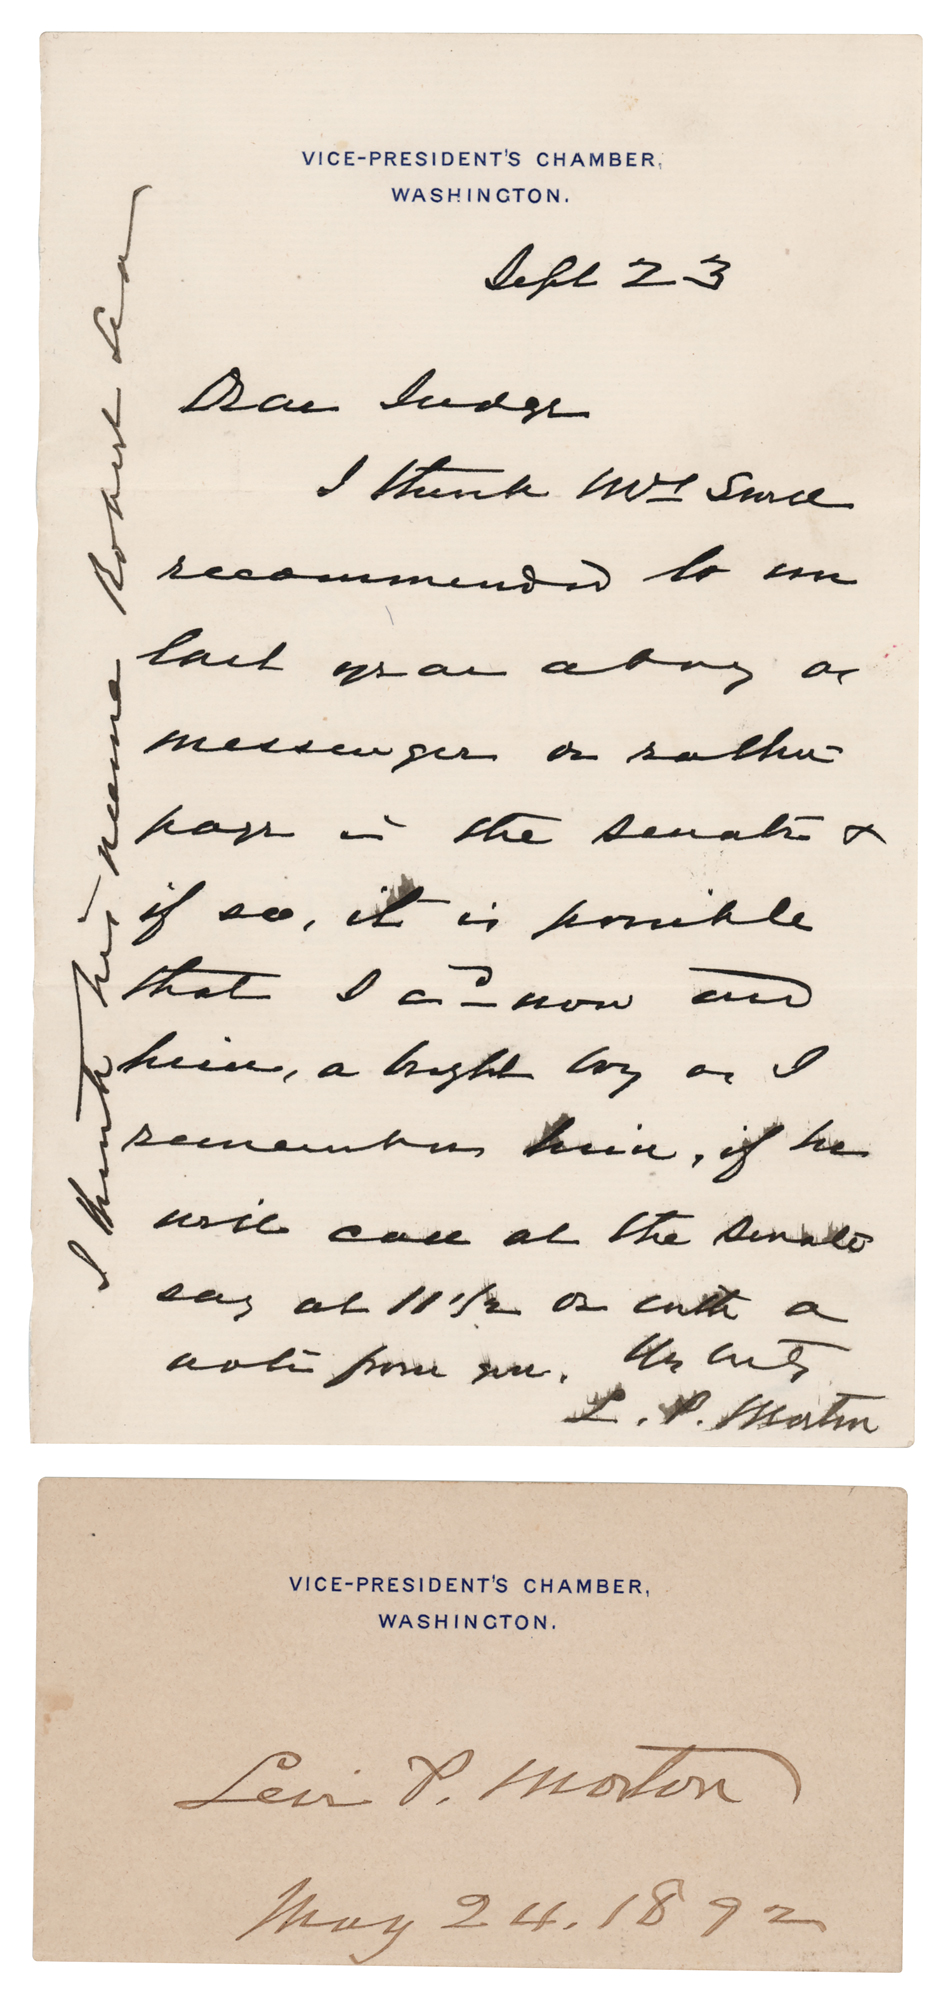 VICE-PRESIDENT'S CHAMBER,
WASHINGTON.
Sept 23
Dear Judge
I think
recommended to me
last year a boy as
messenger or rather
page in the Senate &
if so, it is possible
that I can now aid
him, a bright boy as I
remember him, if he
will call at the Senate
say at 11 1/2 or with a
note from you.
L. P. Morton
I think his name Robert Lee
VICE-PRESIDENT'S CHAMBER,
WASHINGTON.
Levi P. Morton
May 24. 1892